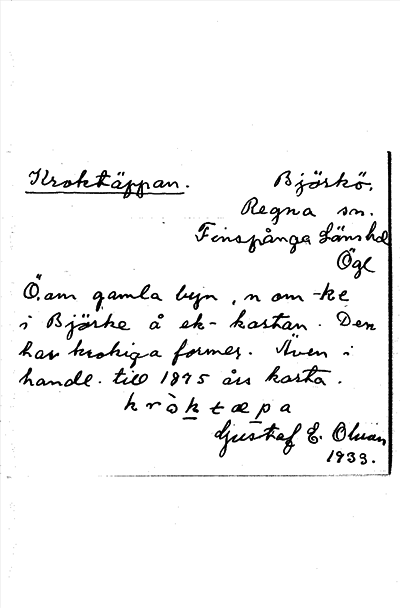 Kroktäppan. Björkö.
Regna sn.
Finspånga Länshd
Ögl
Ö. om gamla byn, n om -ke
i Björke å ek- kartan. Den
har krokiga former. Även i
handl. till 1875 års karta.
kròktæpa
Gustaf E. Olsson
1933.